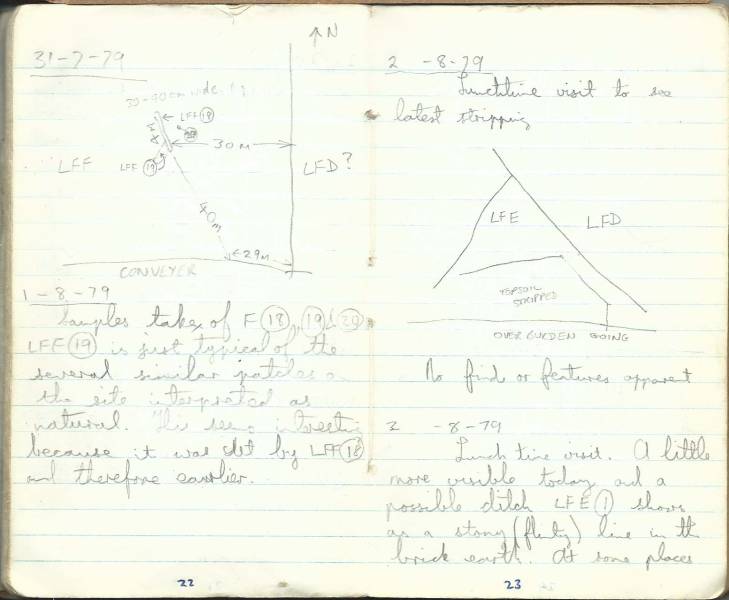 31-7-79
↑N
30-90cm wide
LFF (18)
(20)
4M
30M
LFF
LFF (19)
LFD?
40m
29M
CONVEYER
1-8-79
Samples take of F (18), (19) & (20)
LFF (19) is just typical of the
several similar patches on
the site interpreted as
natural. This seems interesting
because it was cut by LFF (18)
and therefore earlier.
22
2 -8-79
Lunchtime visit to see
latest stripping
LFE
LFD
TOPSOIL
STRIPPED
OVERBURDEN GOING
No find or features apparent
3 -8-79
Lunch time visit. A little
more visible today and a
possible ditch LFE (1) shows
as a stony (flinty) line in the
brick earth. At some places
23